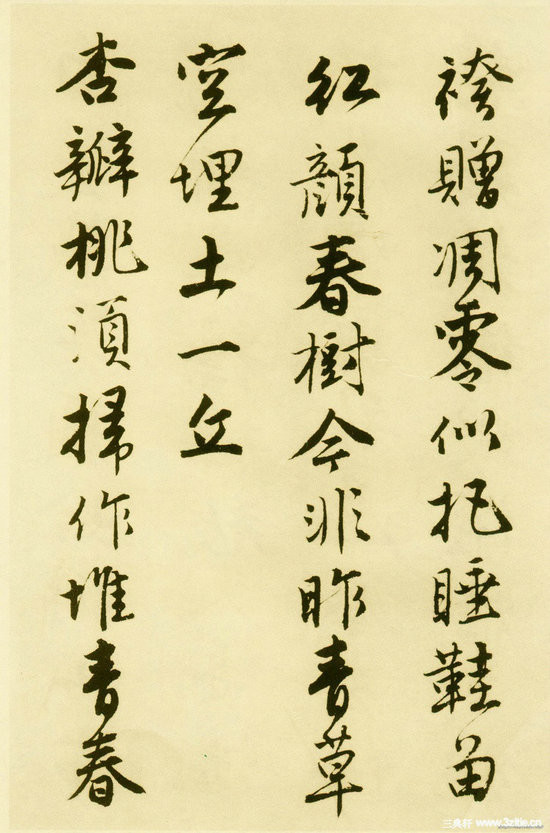 袴贈凋零似把睡鞋留
紅顔春樹今非昨青草
空埋土一丘
杏瓣桃須掃作堆青春
www.3zitie.cn